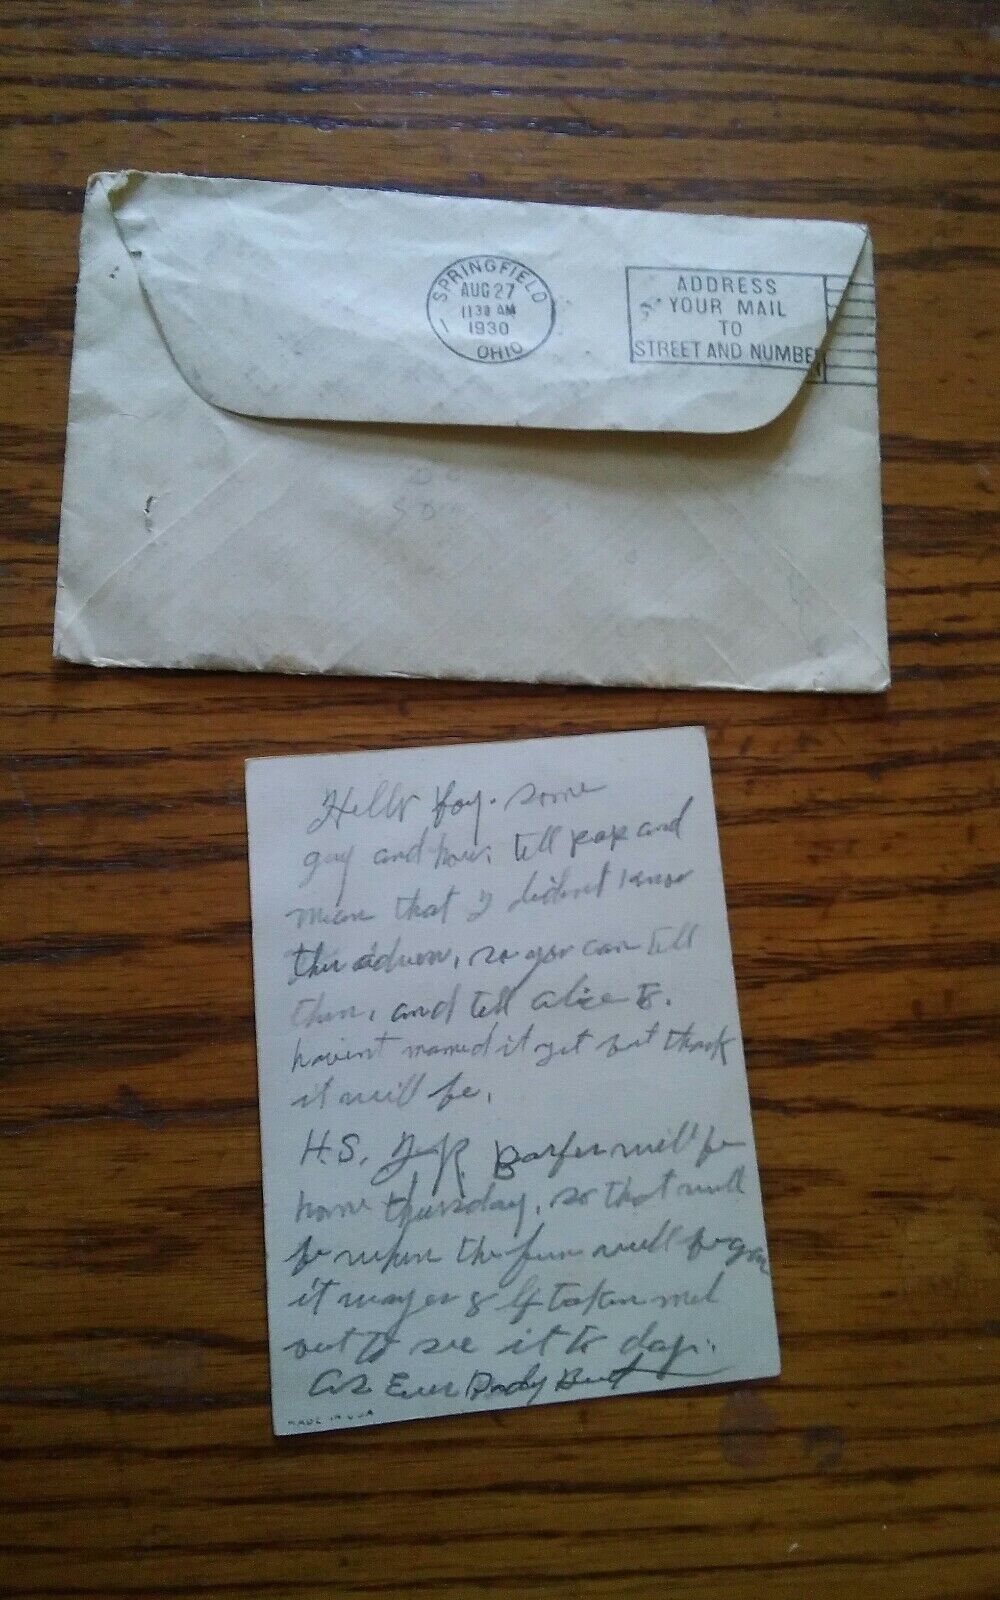 SPRINGFIELD
AUG 27
11 30 AM
1930
1
OHIO
ADDRESS
YOUR MAIL
TO
STREET AND NUMBER
Hello boy. some
guy and how. tell pop and
that I didn't know
the so you can tell
and tell Alice to.
havint named it yet but think
it will be.
H.S. Jr. will be
home thursday, so that will
be when the fun will began
it 8 lb
out to see it to day.
As Ever Bud
MADE IN U.S.A